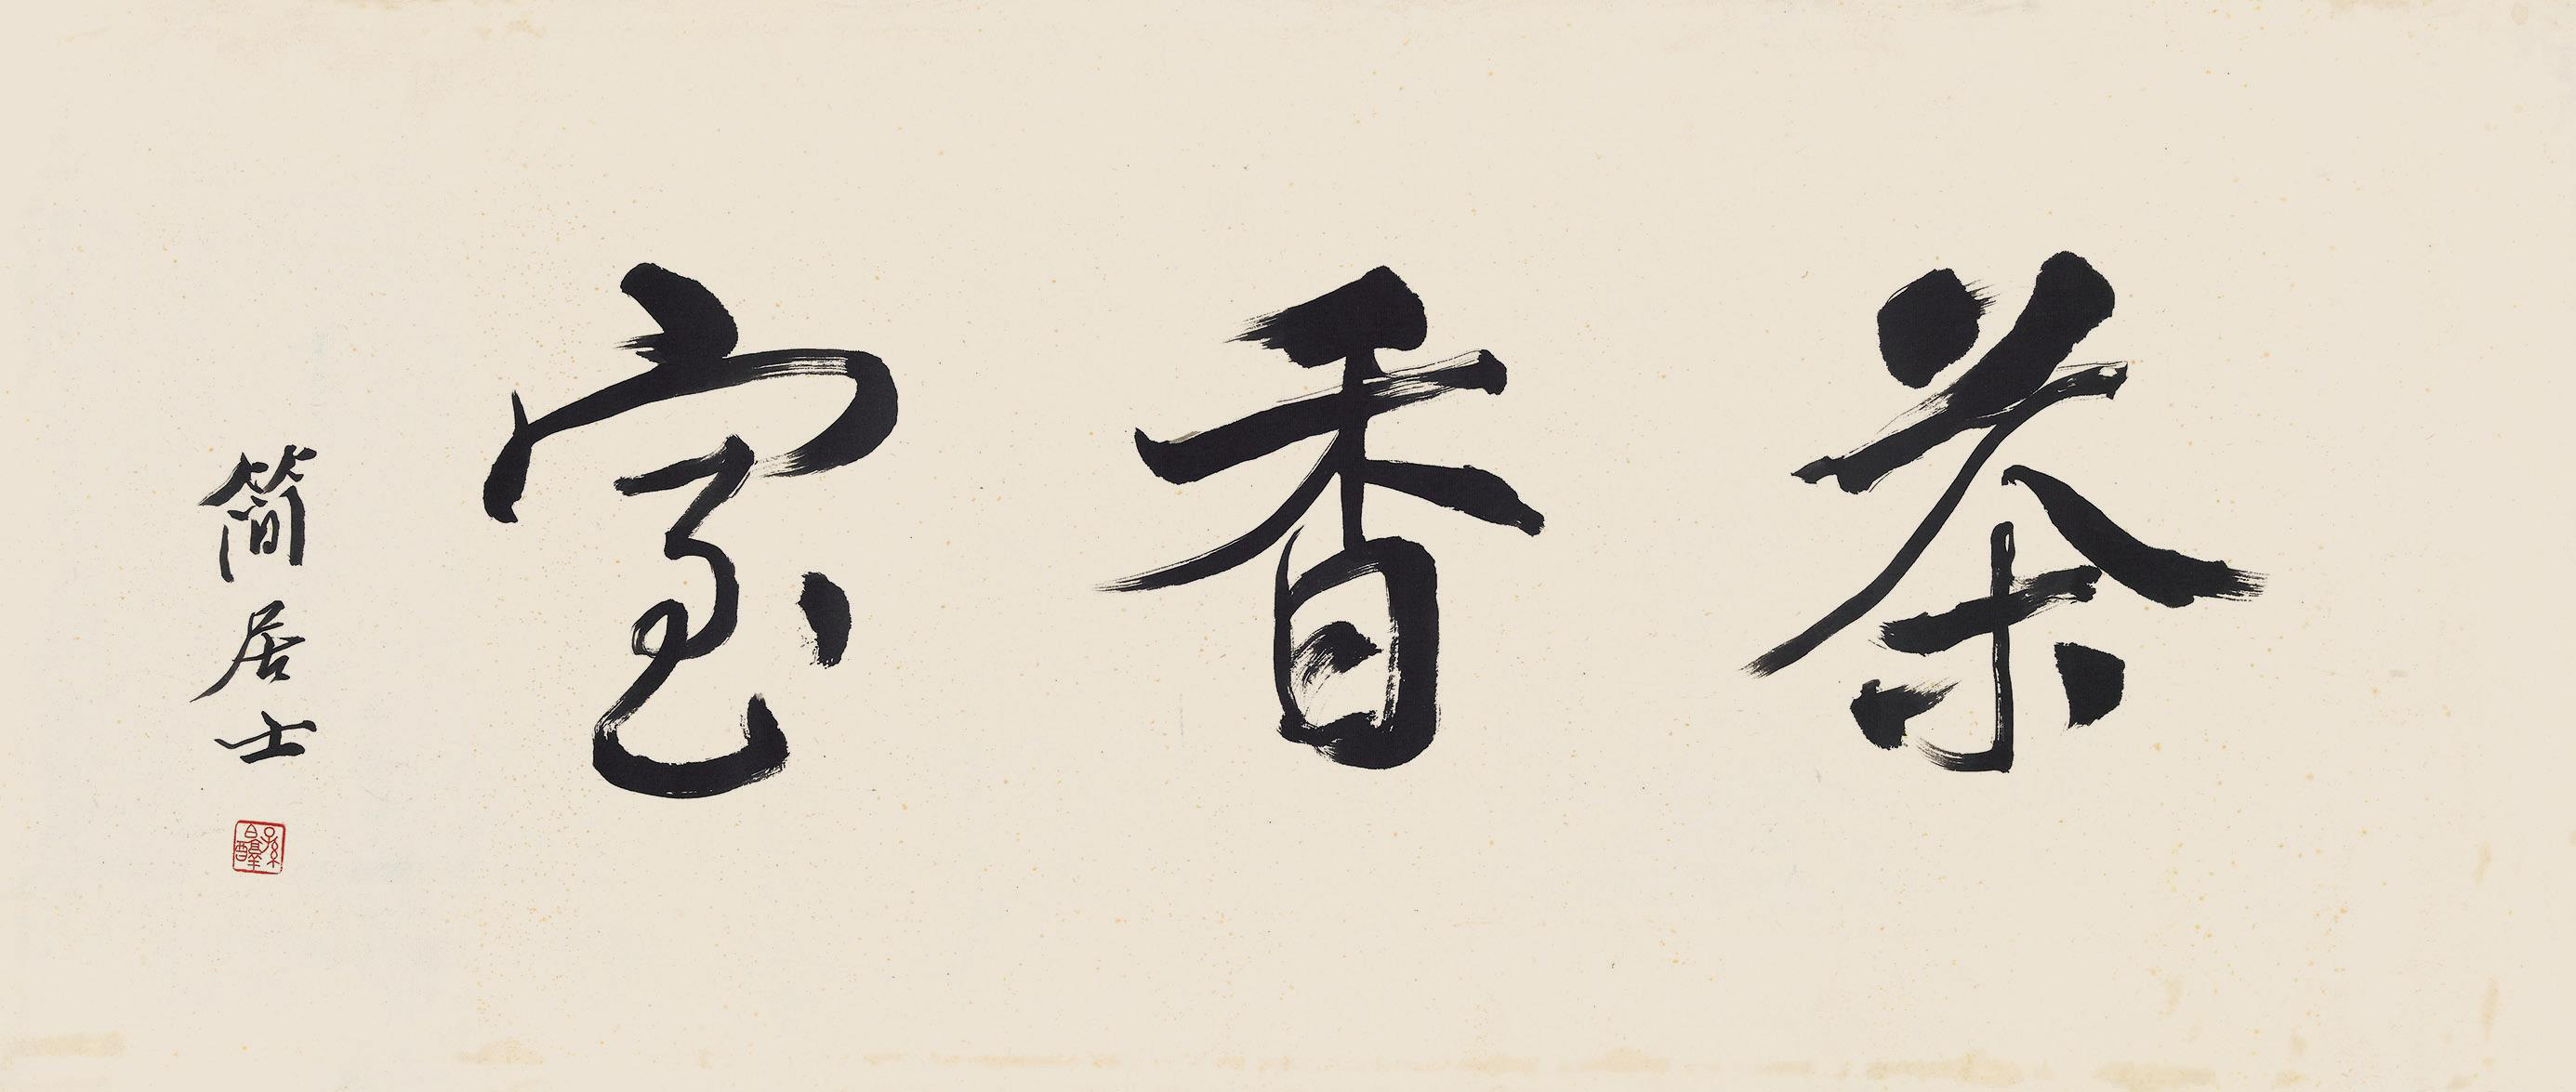 茶香室
簡居士